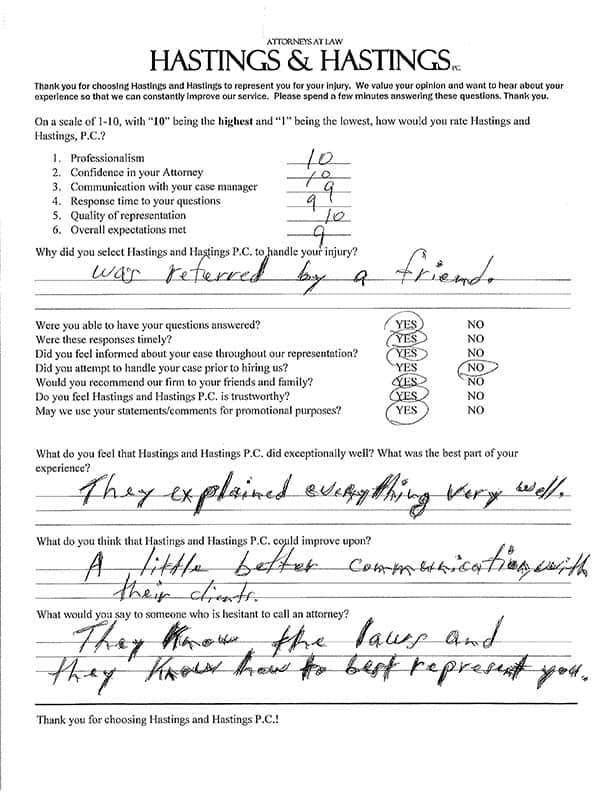 ATTORNEYS AT LAW
HASTINGS & HASTINGS P.C.
Thank you for choosing Hastings and Hastings to represent you for your injury. We value your opinion and want to hear about your
experience so that we can constantly improve our service. Please spend a few minutes answering these questions. Thank you.
On a scale of 1-10, with "10" being the highest and "1" being the lowest, how would you rate Hastings and
Hastings, P.C.?
1. Professionalism 10
2. Confidence in your Attorney 10
3. Communication with your case manager 9
4. Response time to your questions 9
5. Quality of representation 10
6. Overall expectations met 9
Why did you select Hastings and Hastings P.C. to handle your injury?
was referred by a friend.
Were you able to have your questions answered? YES NO
Were these responses timely? YES NO
Did you feel informed about your case throughout our representation? YES NO
Did you attempt to handle your case prior to hiring us? YES NO
Would you recommend our firm to your friends and family? YES NO
Do you feel Hastings and Hastings P.C. is trustworthy? YES NO
May we use your statements/comments for promotional purposes? YES NO
What do you feel that Hastings and Hastings P.C. did exceptionally well? What was the best part of your
experience?
They explained everything very well.
What do you think that Hastings and Hastings P.C. could improve upon?
A little better communication with
their clients.
What would you say to someone who is hesitant to call an attorney?
They know the laws and
they know how to best represent you.
Thank you for choosing Hastings and Hastings P.C.!